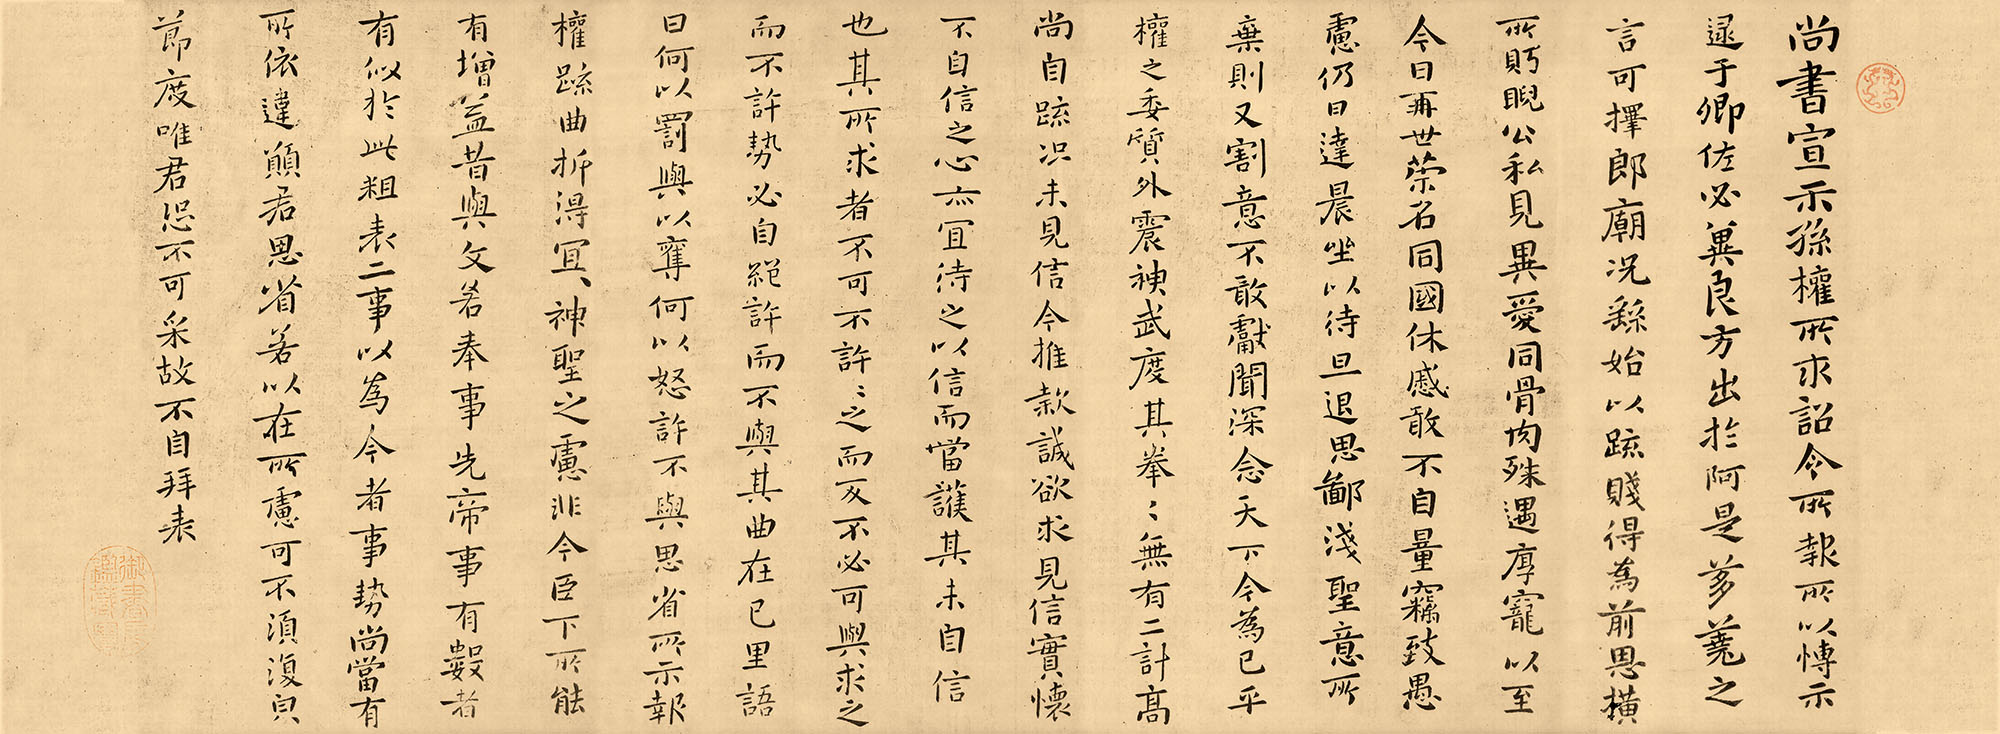 尚書宣示孫權所求詔令所報所以博示
逮于卿佐必冀良方出於阿是芻蕘之
言可擇郎廟況繇始以疏賤得為前恩橫
所眄睨公私見異愛同骨肉殊遇厚寵以至
今日再世榮名同國休慼敢不自量竊致愚
慮仍日達晨坐以待旦退思鄙淺聖意所
棄則又割意不敢獻聞深念天下今為已平
權之委質外震神武度其拳〻無有二計高
尚自疏況未見信今推款誠欲求見信實懷
不自信之心亦冝待之以信而當護其未自信
也其所求者不可不許〻之而反不必可與求之
而不許勢必自絕許而不與其曲在己里語
曰何以罰與以奪何以怒許不與思省所示報
權疏曲折得冝〻神聖之慮非今臣下所能
有增益昔與文若奉事先帝事有數者
有似於此粗表二事以為今者事勢尚當有
所依違願君思省若以在所慮可不須復皃
節度唯君恐不可采故不自拜表